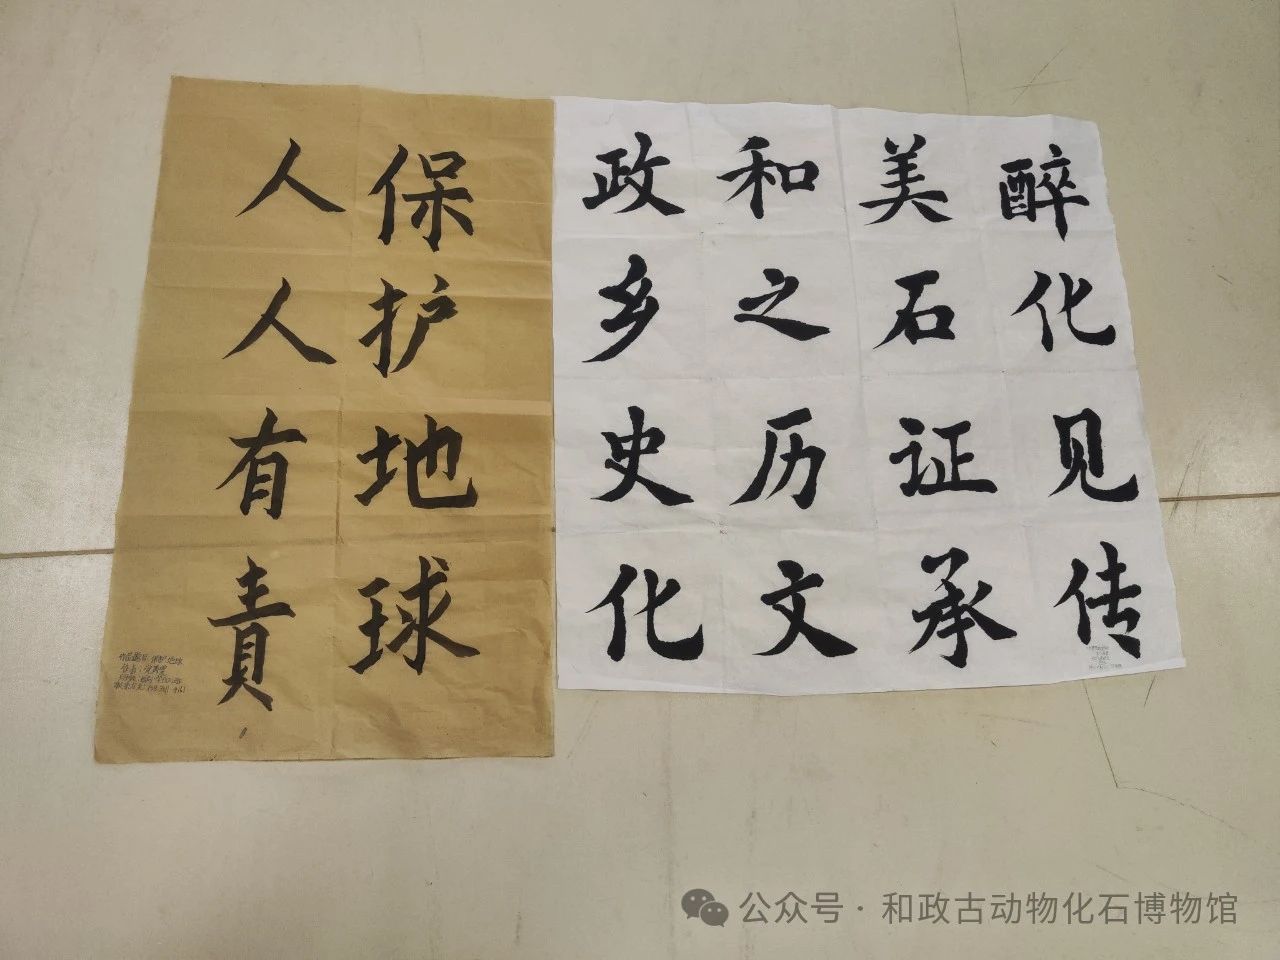 醉美和政
化石之乡
见证历史
传承文化
保护地球
人人有責
作品题目：保护地球
公众号·和政古动物化石博物馆